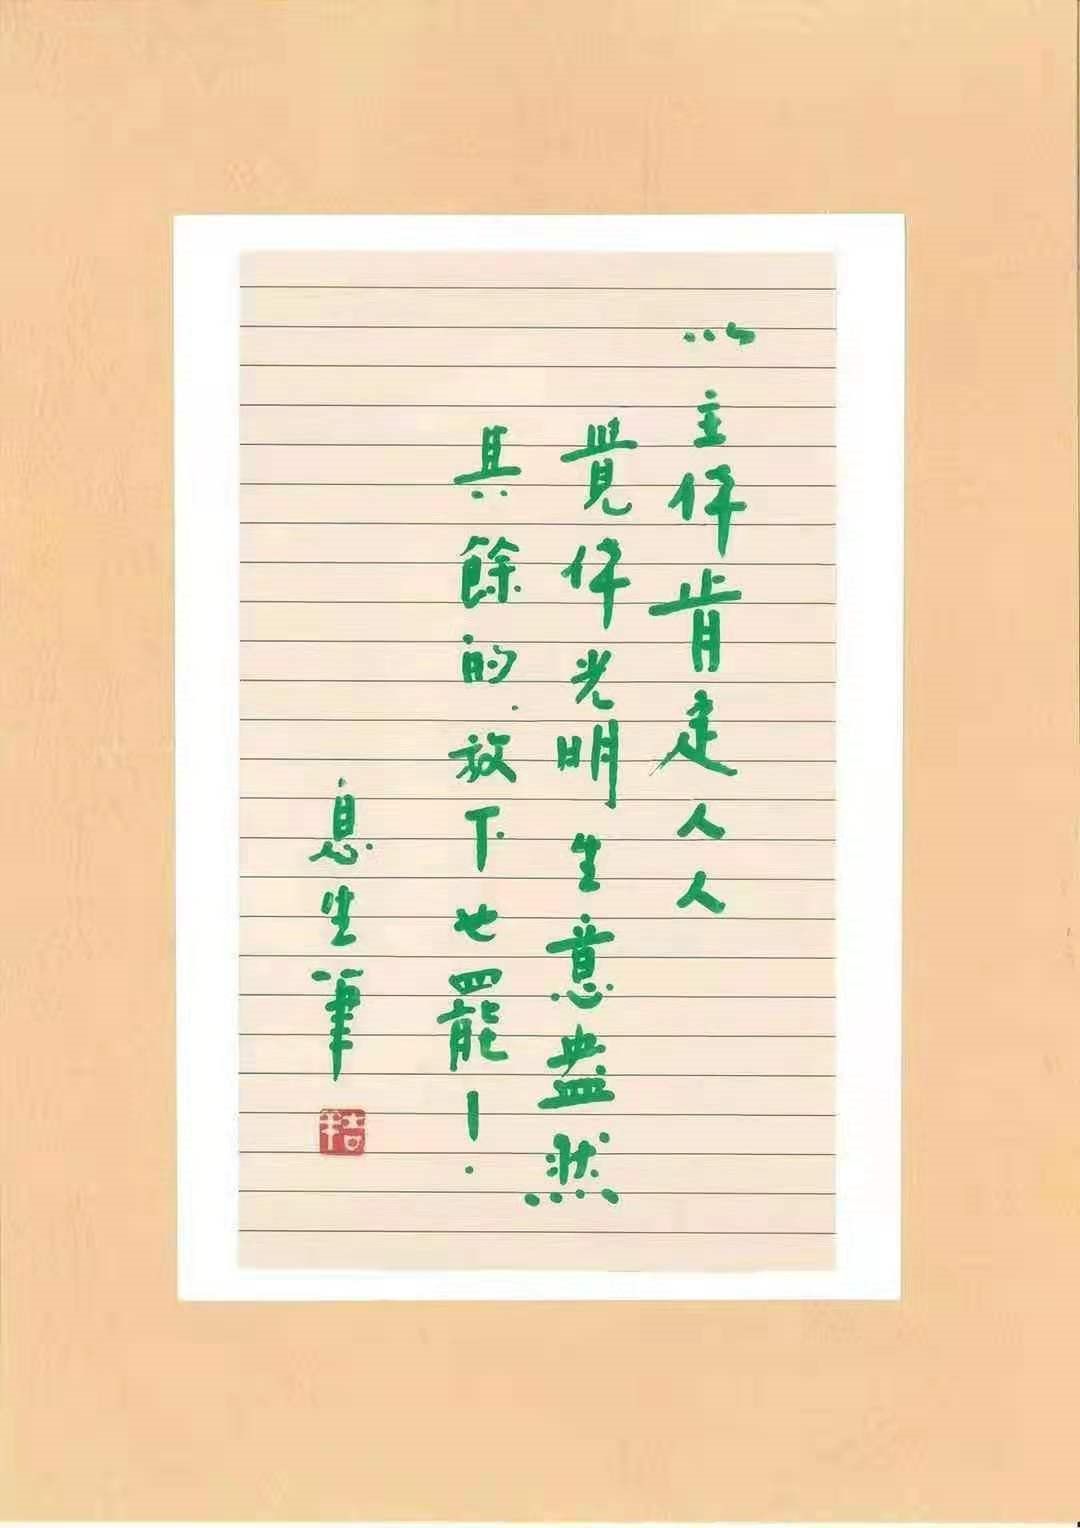 以主伴肯定人人
覺伴光明生意盎然
其餘的放下也罷！
息生筆